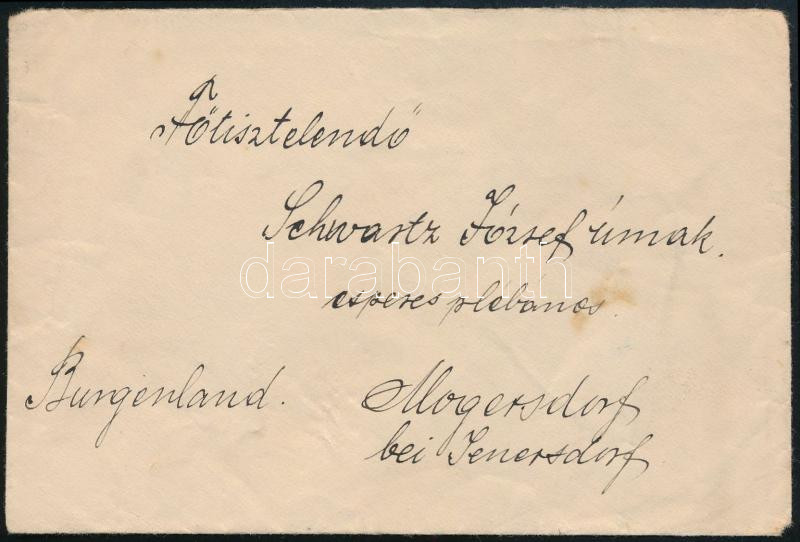 Főtisztelendő
Schwartz József úrnak.
esperes plébános.
Burgenland. Mogersdorf
bei Jenersdorf
darabanth